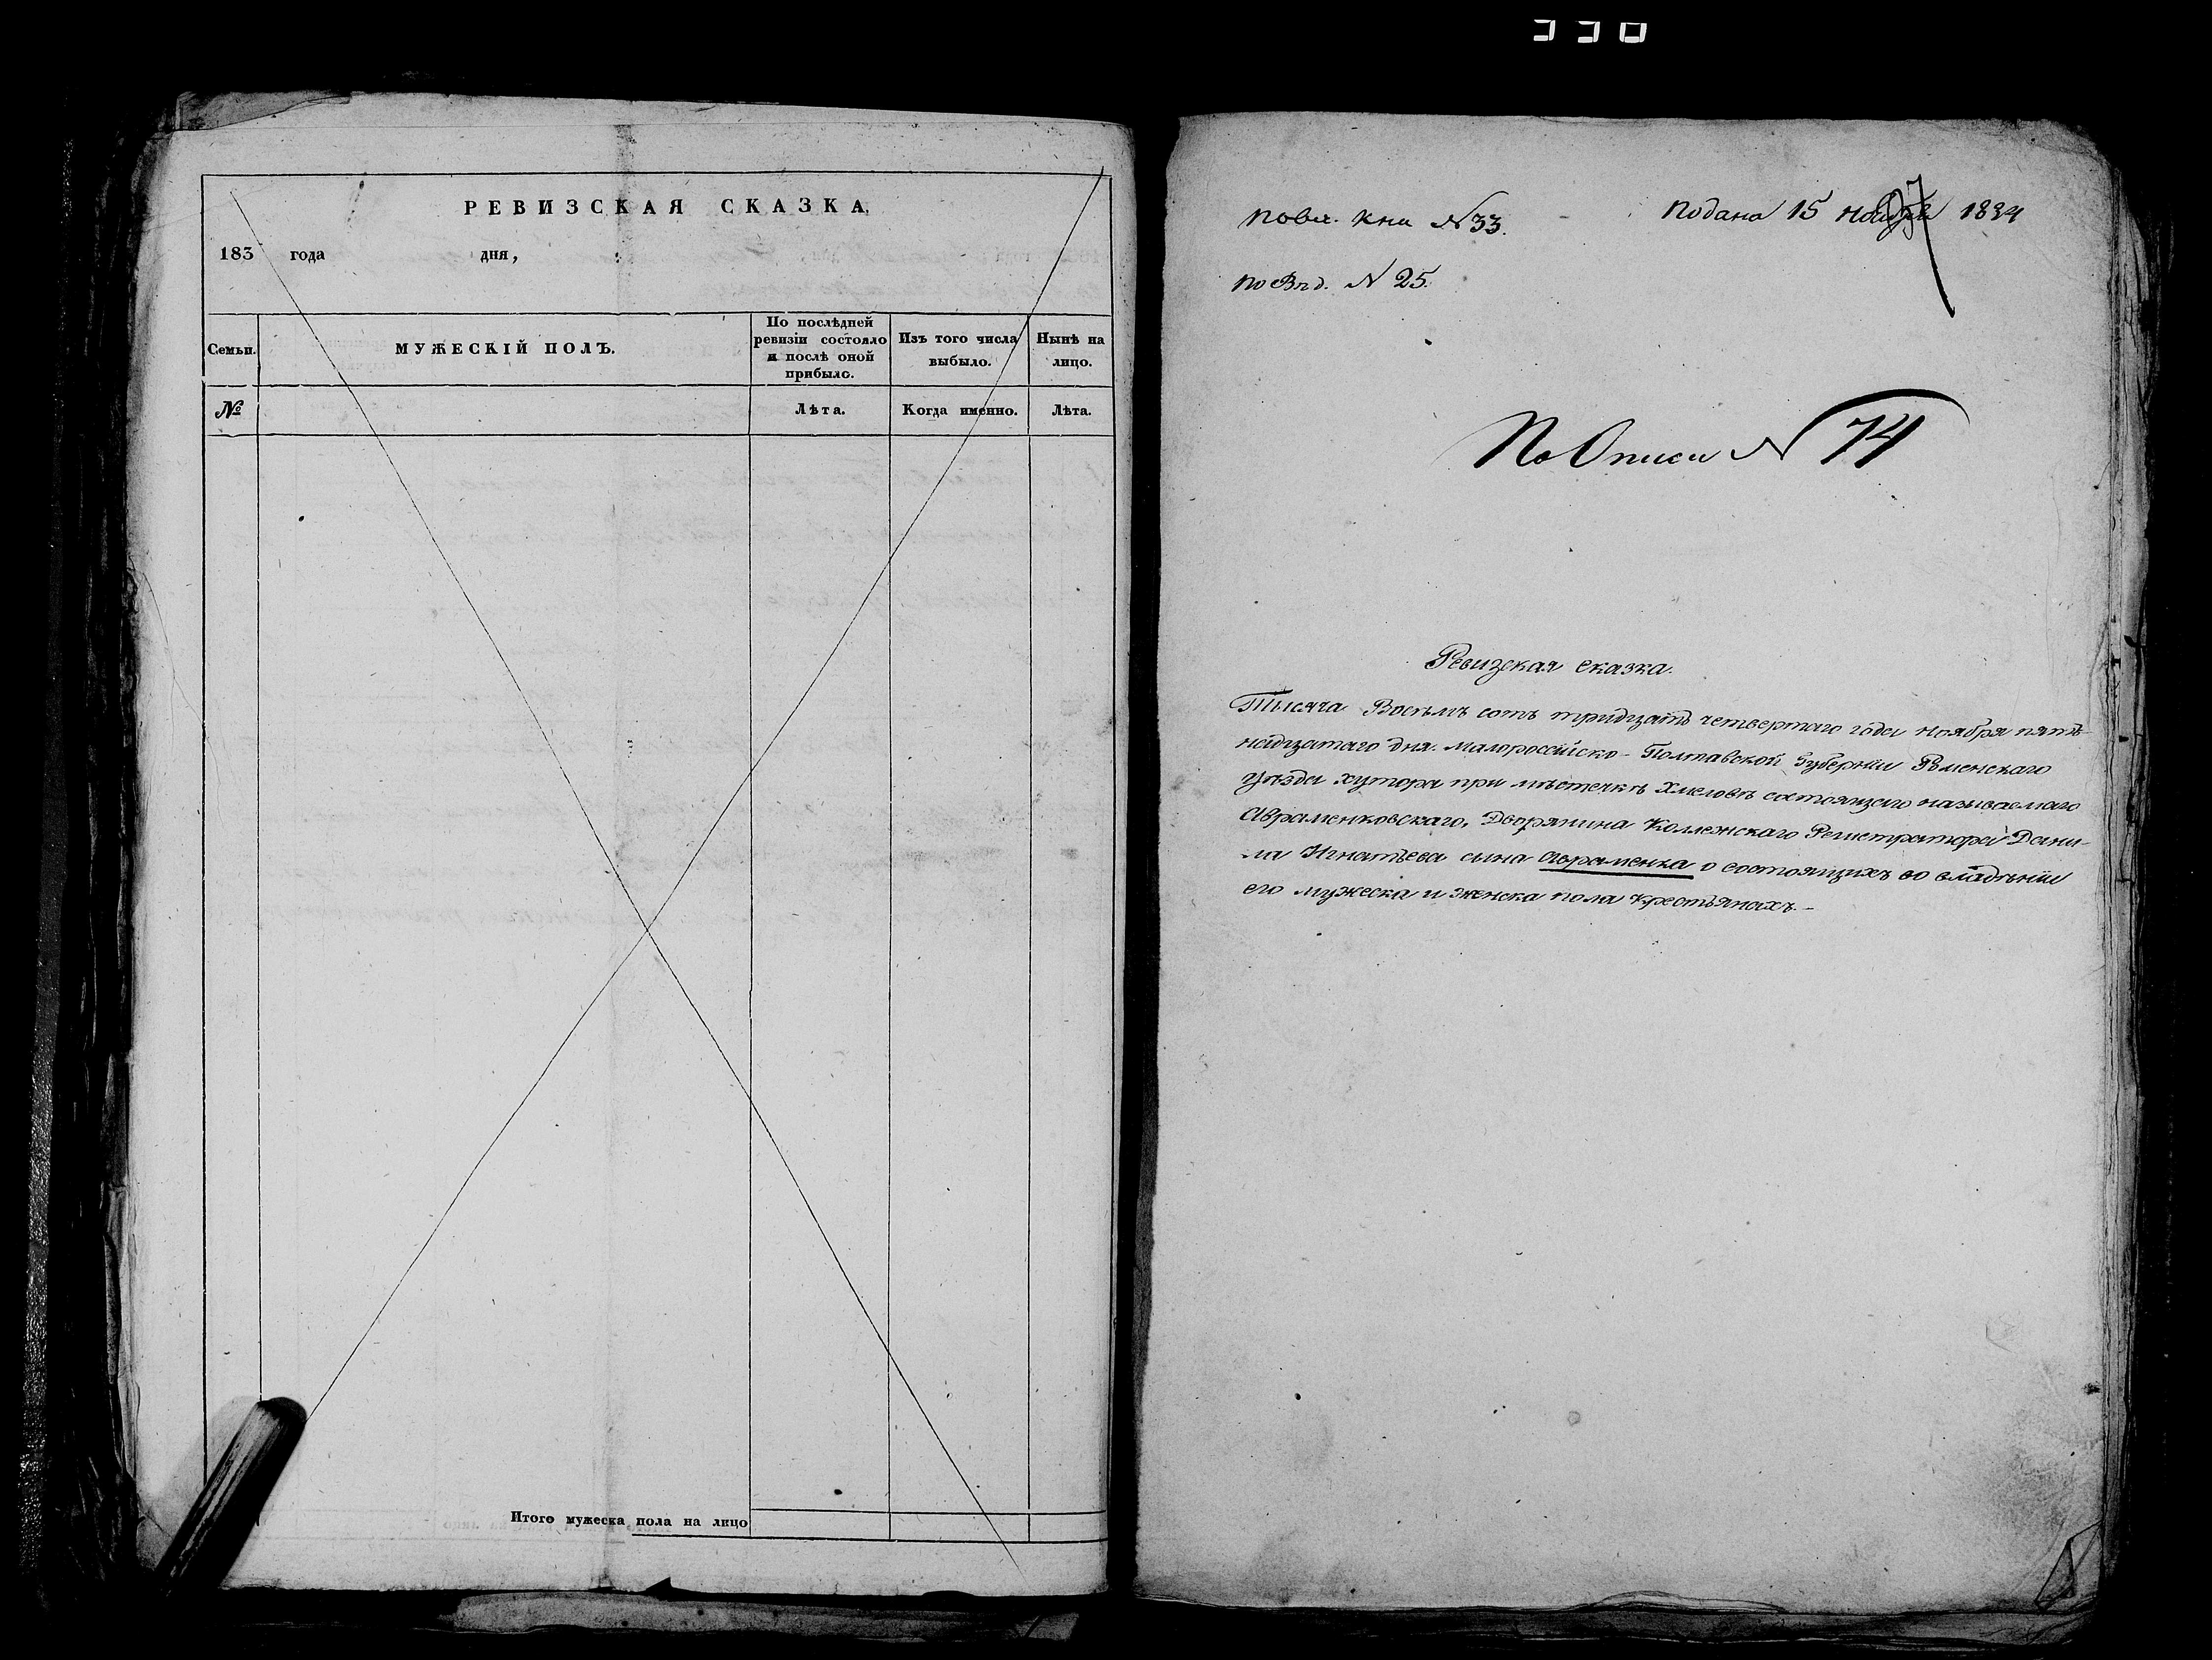 330
РЕВИЗСКАЯ СКАЗКА,
183 года дня,
Семьи.
МУЖЕСКІЙ ПОЛЪ.
По послѣдней
ревизіи состояло
и послѣ оной
прибыло.
Изъ того числа
выбыло.
Нынѣ на
лицо.
№
Лѣта.
Когда именно.
Лѣта.
Итого мужеска пола на лицо
Подана 15 ноября 1834
кни N 33.
N 25.
По Описи N 74
Ревизская сказка.
Тысяча Восѣмъ сотъ тридцать четвертаго года ноября пять-
надцатаго дня. Малороссійско-Полтавской Губерніи Роменскаго
уѣзда хутора при мѣстечкѣ Хмеловѣ состоящаго называемаго
Авраменковскаго, Дворянина Коллежскаго Регистратора Дани-
ла Игнатьева сына Авраменка о состоящихъ во владѣніи
его мужеска и женска пола крестьянахъ.-